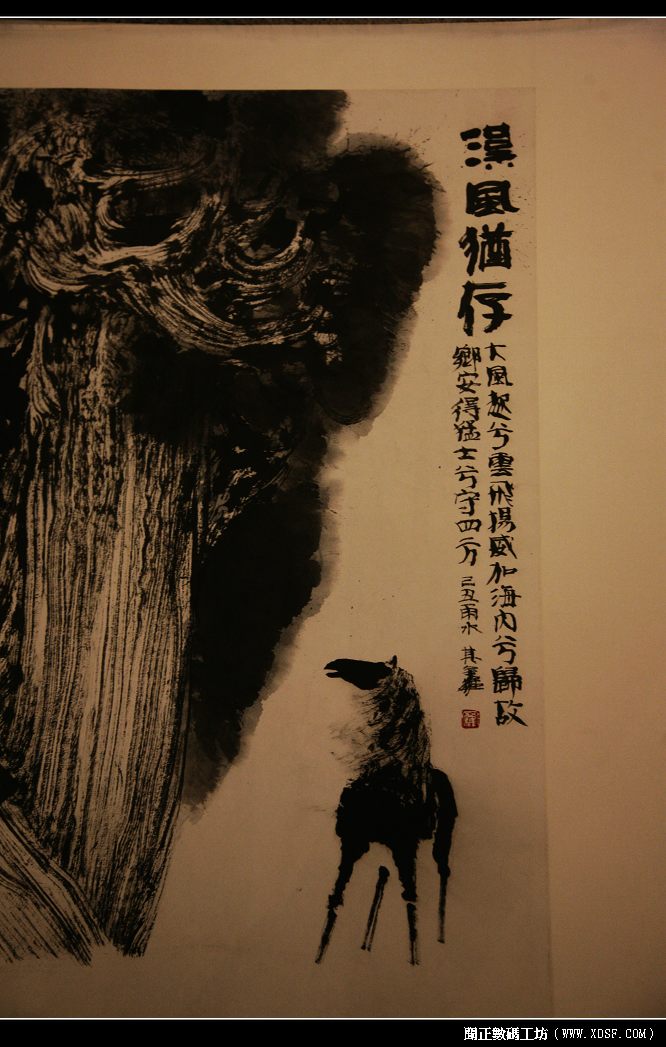 漢風猶存
大風起兮雲飛揚威加海內兮歸故
鄉安得猛士兮守四方 己丑雨水 其
聞正數碼工坊（WWW.XDSF.COM）